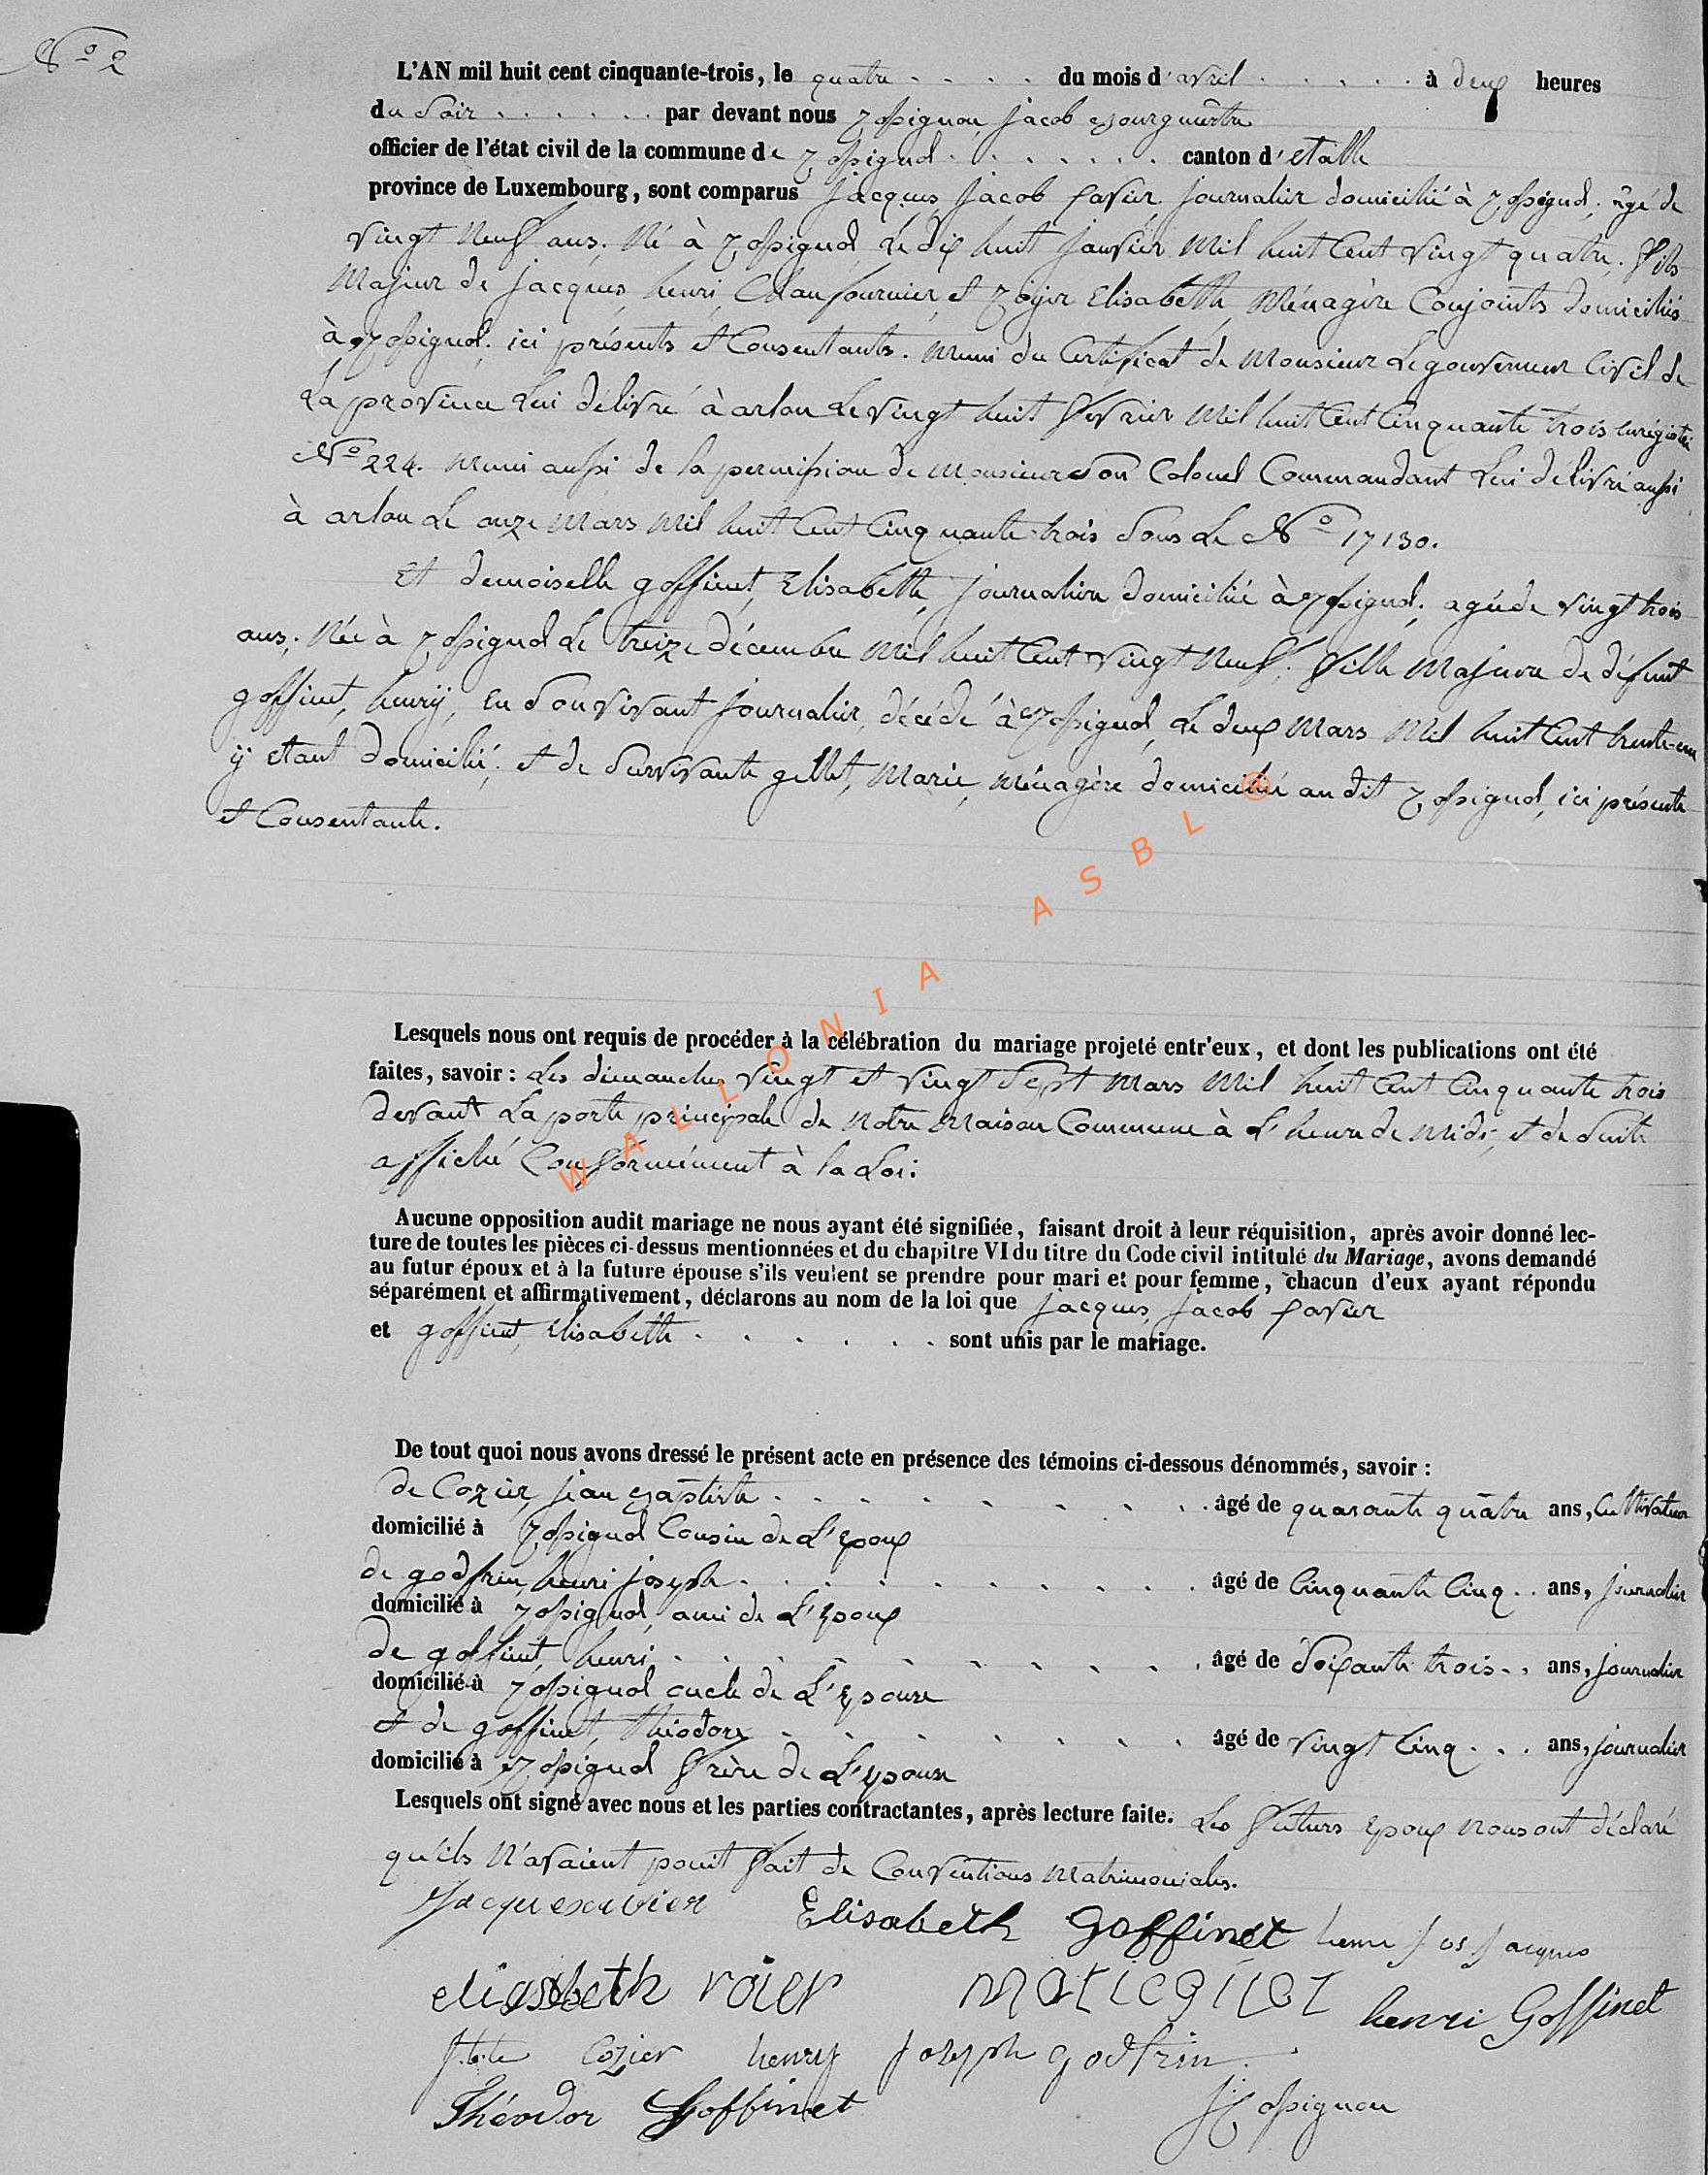 No 2
L'AN mil huit cent cinquante-trois, le quatre . . . . du mois d'avril . . . . . à deux heures
du Soir . . . . . . par devant nous rossignon, jacob Bourgmestre
officier de l'état civil de la commune de rossignol . . . . . . . canton d'etalle
province de Luxembourg, sont comparus jacques, jacob favier, journalier domicilié à rossignol, âgé de
vingt Neuf ans, Né à rossignol, Le dix huit janvier Mil huit Cent vingt quatre, fils
Majeur de jacques, henri, Chaufournier, et Elisabeth, Ménagère Conjoints domiciliés
à rossignol, ici présents et Consentants. Muni du Certificat de Monsieur Le gouverneur Civil de
La province Lui délivré à arlon Le vingt huit fevrier Mil huit Cent Cinquante trois enrégistré
No 224. Muni aussi de la permission de Monsieur Son Colonel Commandant Lui délivré aussi
à arlon Le onze Mars Mil huit Cent Cinquante-trois Sous Le No 17130.
Et demoiselle goffinet, Elisabeth, journalière domiciliée à rossignol, agée de vingt trois
ans, Née à rossignol Le treize décembre Mil huit Cent vingt Neuf, fille Majeure de défunt
goffinet, henrÿ, en Son vivant journalier, décédé à rossignol, Le deux Mars Mil huit Cent trente-un
ÿ etant domicilié; et de Survivante gillet, Marie, Ménagère domicilié audit rossignol, ici présente
et Consentante.
WALLONIA ASBL ®
Lesquels nous ont requis de procéder à la célébration du mariage projeté entr'eux, et dont les publications ont été
faites, savoir : Les dimanches vingt et vingt Sept Mars Mil huit Cent Cinquante trois
devant La porte principale de Notre Maison Commune à L'heure de Midi, et de Suite
affiché Conformément à la Loi.
Aucune opposition audit mariage ne nous ayant été signifiée, faisant droit à leur réquisition, après avoir donné lec-
ture de toutes les pièces ci-dessus mentionnées et du chapitre VI du titre du Code civil intitulé du Mariage, avons demandé
au futur époux et à la future épouse s'ils veulent se prendre pour mari et pour femme, chacun d'eux ayant répondu
séparément et affirmativement, déclarons au nom de la loi que jacques, jacob favier
et goffinet, Elisabeth . . . . . . sont unis par le mariage.
De tout quoi nous avons dressé le présent acte en présence des témoins ci-dessous dénommés, savoir :
de Cozier, jean Baptiste . . . . . . . . âgé de quarante quatre ans, Cultivateur
domicilié à rossignol Cousin de L'Epoux
de godfrin, henri joseph . . . . . . . . âgé de Cinquante Cinq . . ans, journalier
domicilié à rossignol, ami de L'Epoux
de goffinet, henri . . . . . . . . . âgé de Soixante trois . . ans, journalier
domicilié à rossignol oncle de L'Epouse
et de goffinet, théodore . . . . . . . . âgé de vingt Cinq . . . ans, journalier
domicilié à rossignol frère de L'Epouse
Lesquels ont signé avec nous et les parties contractantes, après lecture faite. Les futurs Epoux Nous ont déclaré
qu'ils N'avaient point fait de Conventions Matrimoniales.
Elisabeth Goffinet henri jos jacques
eliasabeth roier Marie gilet henri Goffinet
Cozier henry joseph godfrin
Théodor Goffinet rossignon